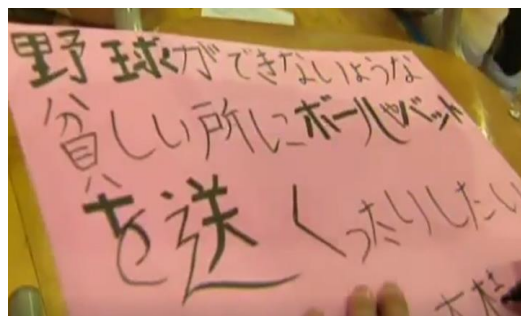 野球ができないような
貧しい所にボールやバット
を送くったりしたい